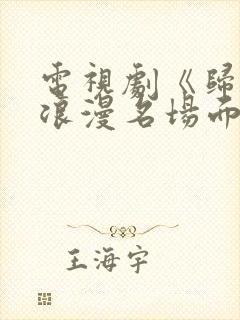 電視劇《歸
浪漫名場面
王海宇